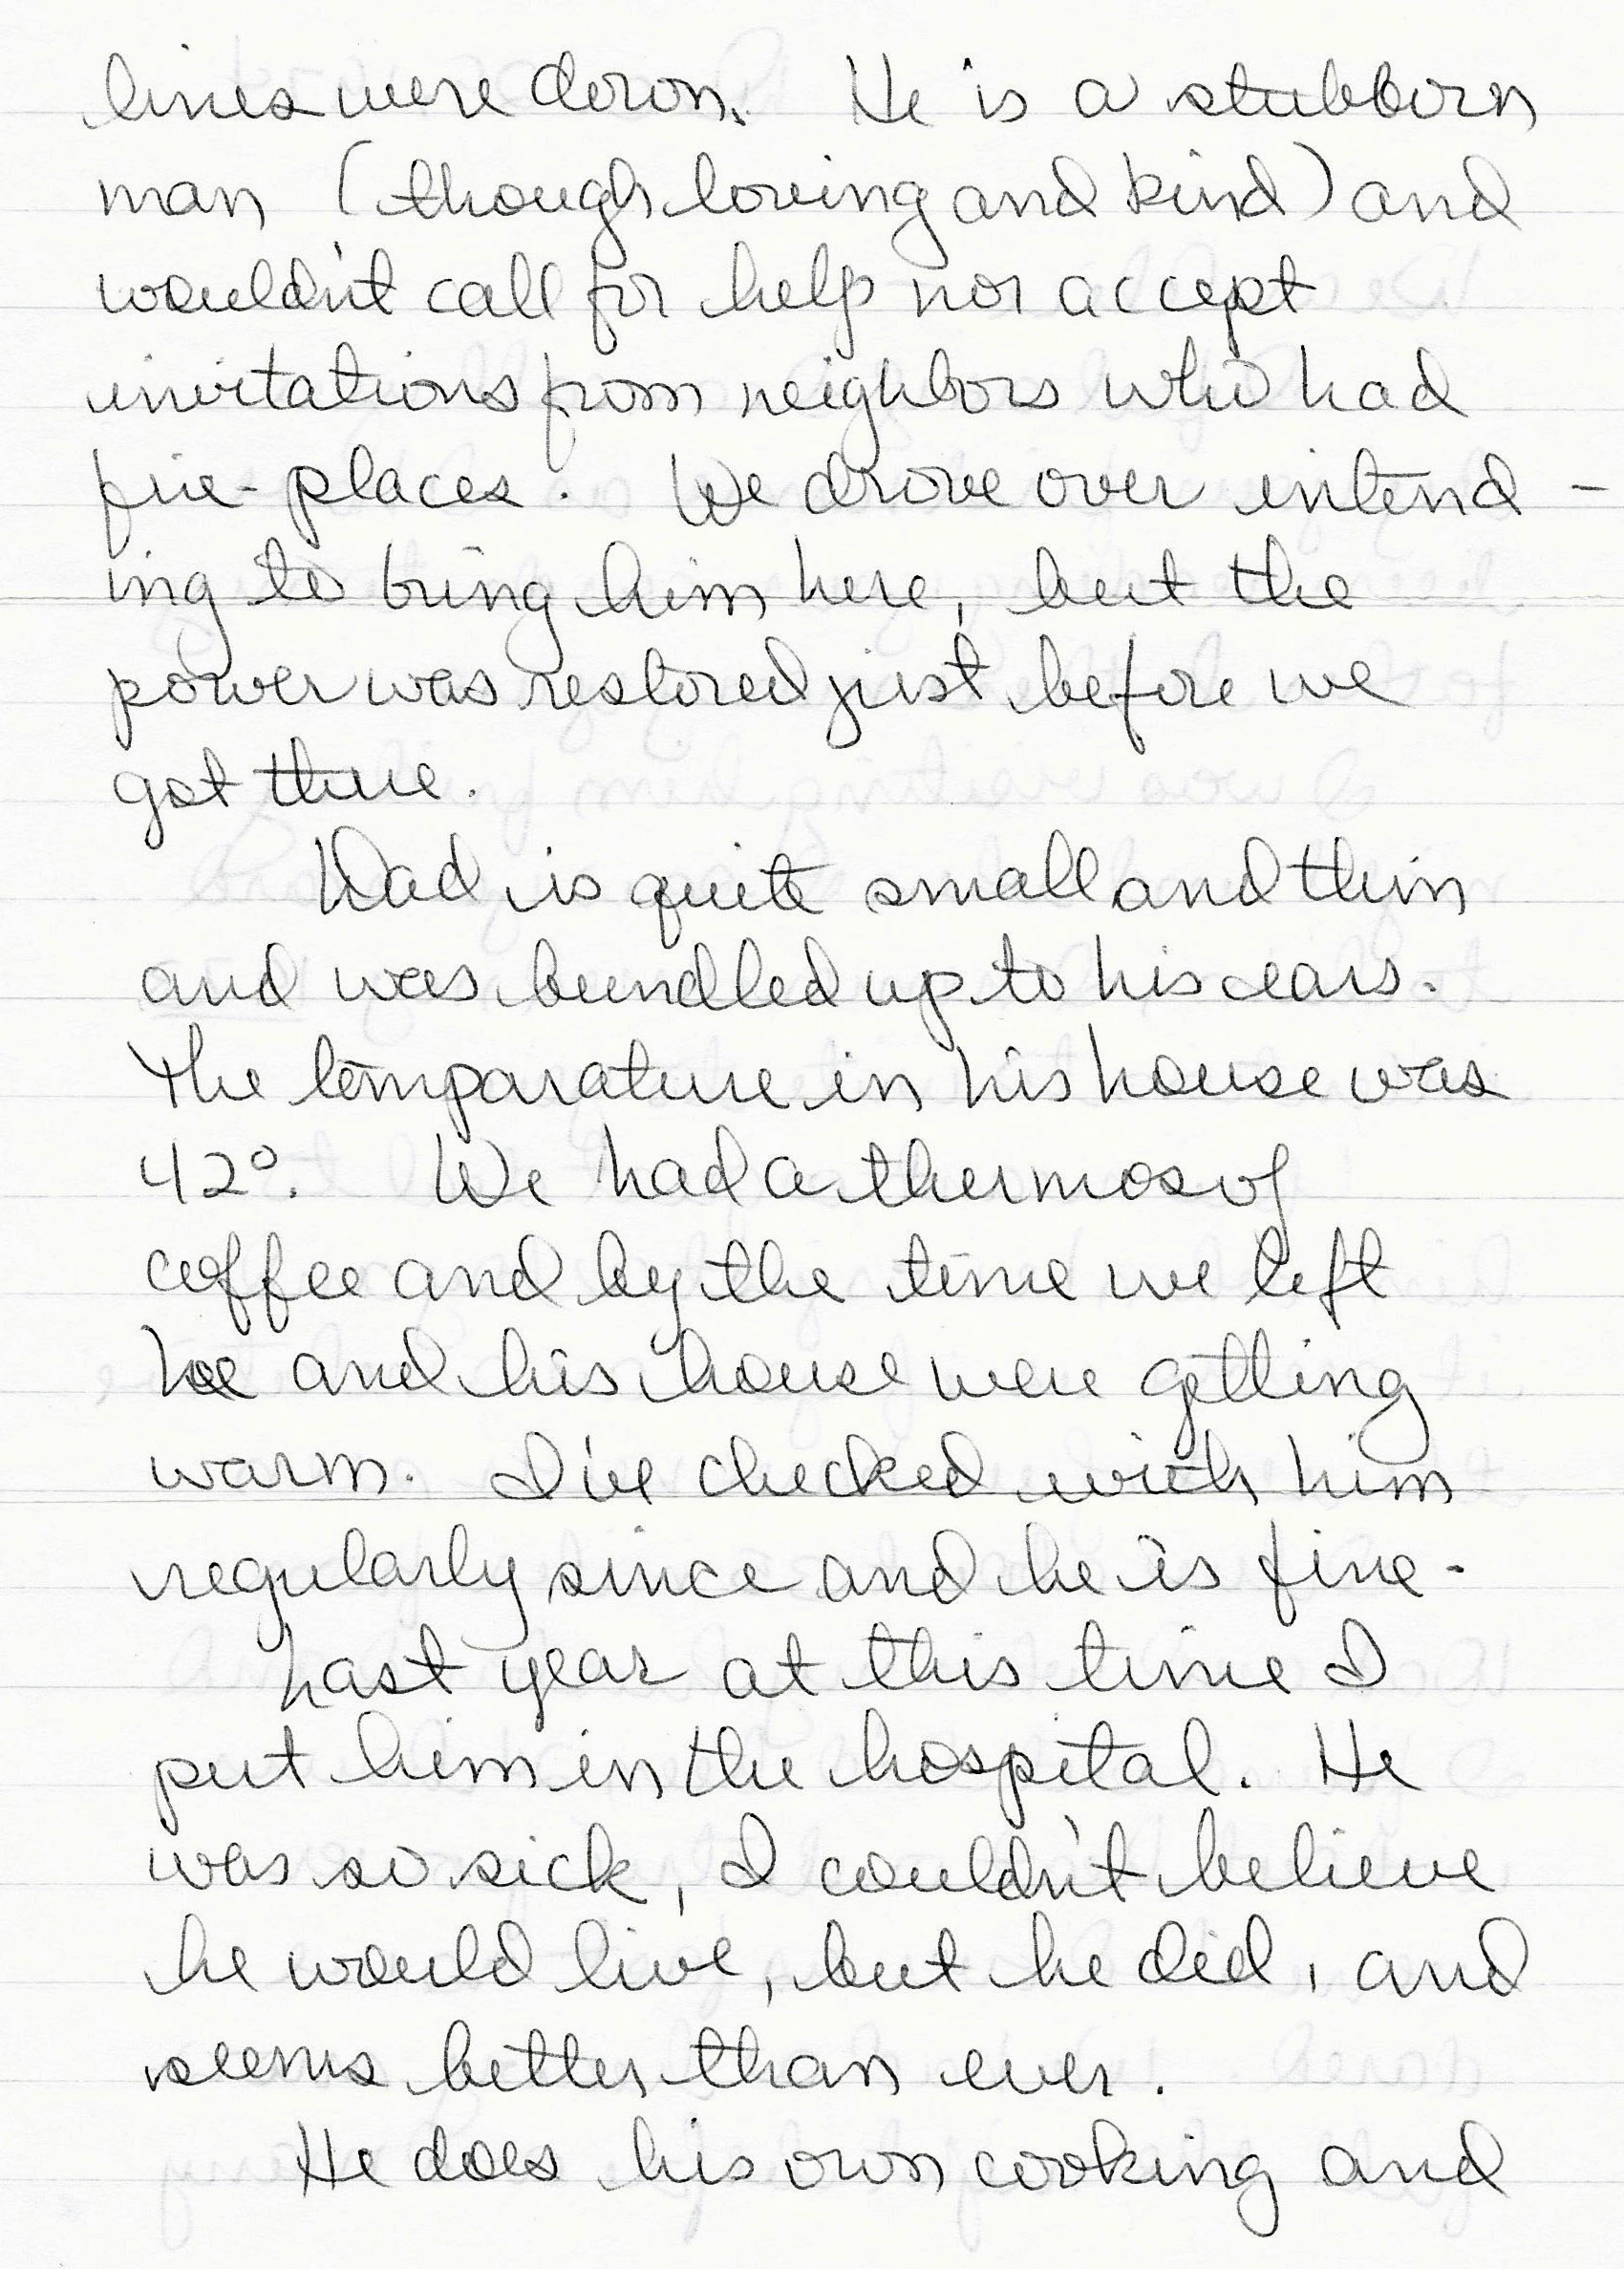 lines were down. He is a stubborn
man (though loving and kind) and
wouldn't call for help nor accept
invitations from neighbors who had
fire-places. We drove over intend-
ing to bring him here, but the
power was restored just before we
got there.
Dad is quite small and thin
and was bundled up to his ears.
The temparature in his house was
42°. We had a thermos of
coffee and by the time we left
he and his house were getting
warm. I've checked with him
regularly since and he is fine.
Last year at this time I
put him in the hospital. He
was so sick, I couldn't believe
he would live, but he did, and
seems better than ever.
He does his own cooking and